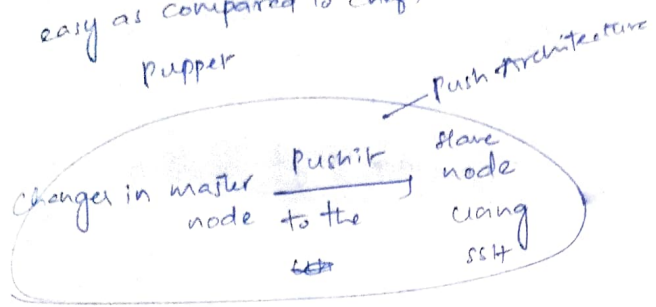 easy as compared to
Puppet
Push Architecture
Changes in master node Push it to the slave node using SSH